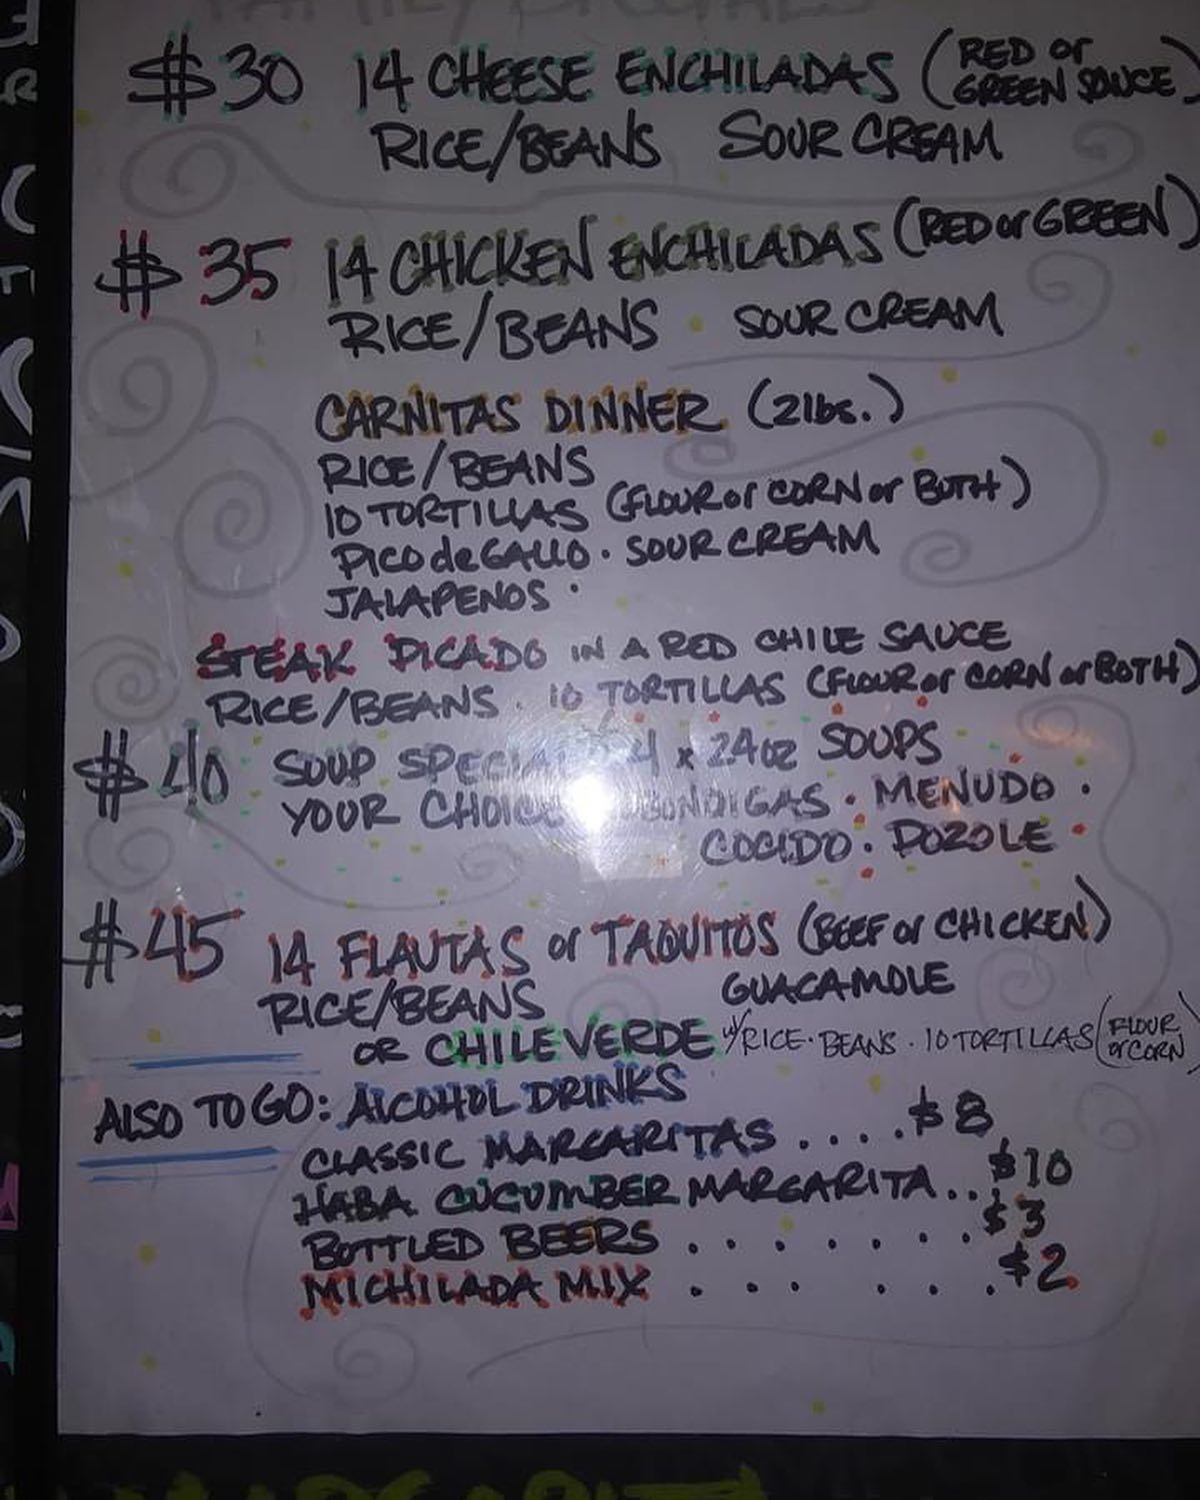 FAMILY SPECIALS
$30 14 CHEESE ENCHILADAS (RED or GREEN SAUCE)
RICE/BEANS SOUR CREAM
$35 14 CHICKEN ENCHILADAS (RED or GREEN)
RICE/BEANS SOUR CREAM
CARNITAS DINNER (2lbs.)
RICE/BEANS
10 TORTILLAS (FLOUR or CORN or BOTH)
PICO de GALLO · SOUR CREAM
JALAPENOS ·
STEAK PICADO IN A RED CHILE SAUCE
RICE/BEANS · 10 TORTILLAS (FLOUR or CORN or BOTH)
$40 SOUP SPECIAL 4 x 24oz SOUPS
YOUR CHOICE · MENUDO ·
COCIDO · POZOLE ·
$45 14 FLAUTAS or TAQUITOS (BEEF or CHICKEN)
RICE/BEANS GUACAMOLE
OR CHILE VERDE w/ RICE · BEANS · 10 TORTILLAS (FLOUR or CORN)
ALSO TO GO: ALCOHOL DRINKS
CLASSIC MARGARITAS . . . . . $8
HABA CUCUMBER MARGARITA . . . $10
BOTTLED BEERS . . . . . . . . $3
MICHILADA MIX . . . . . . . $2